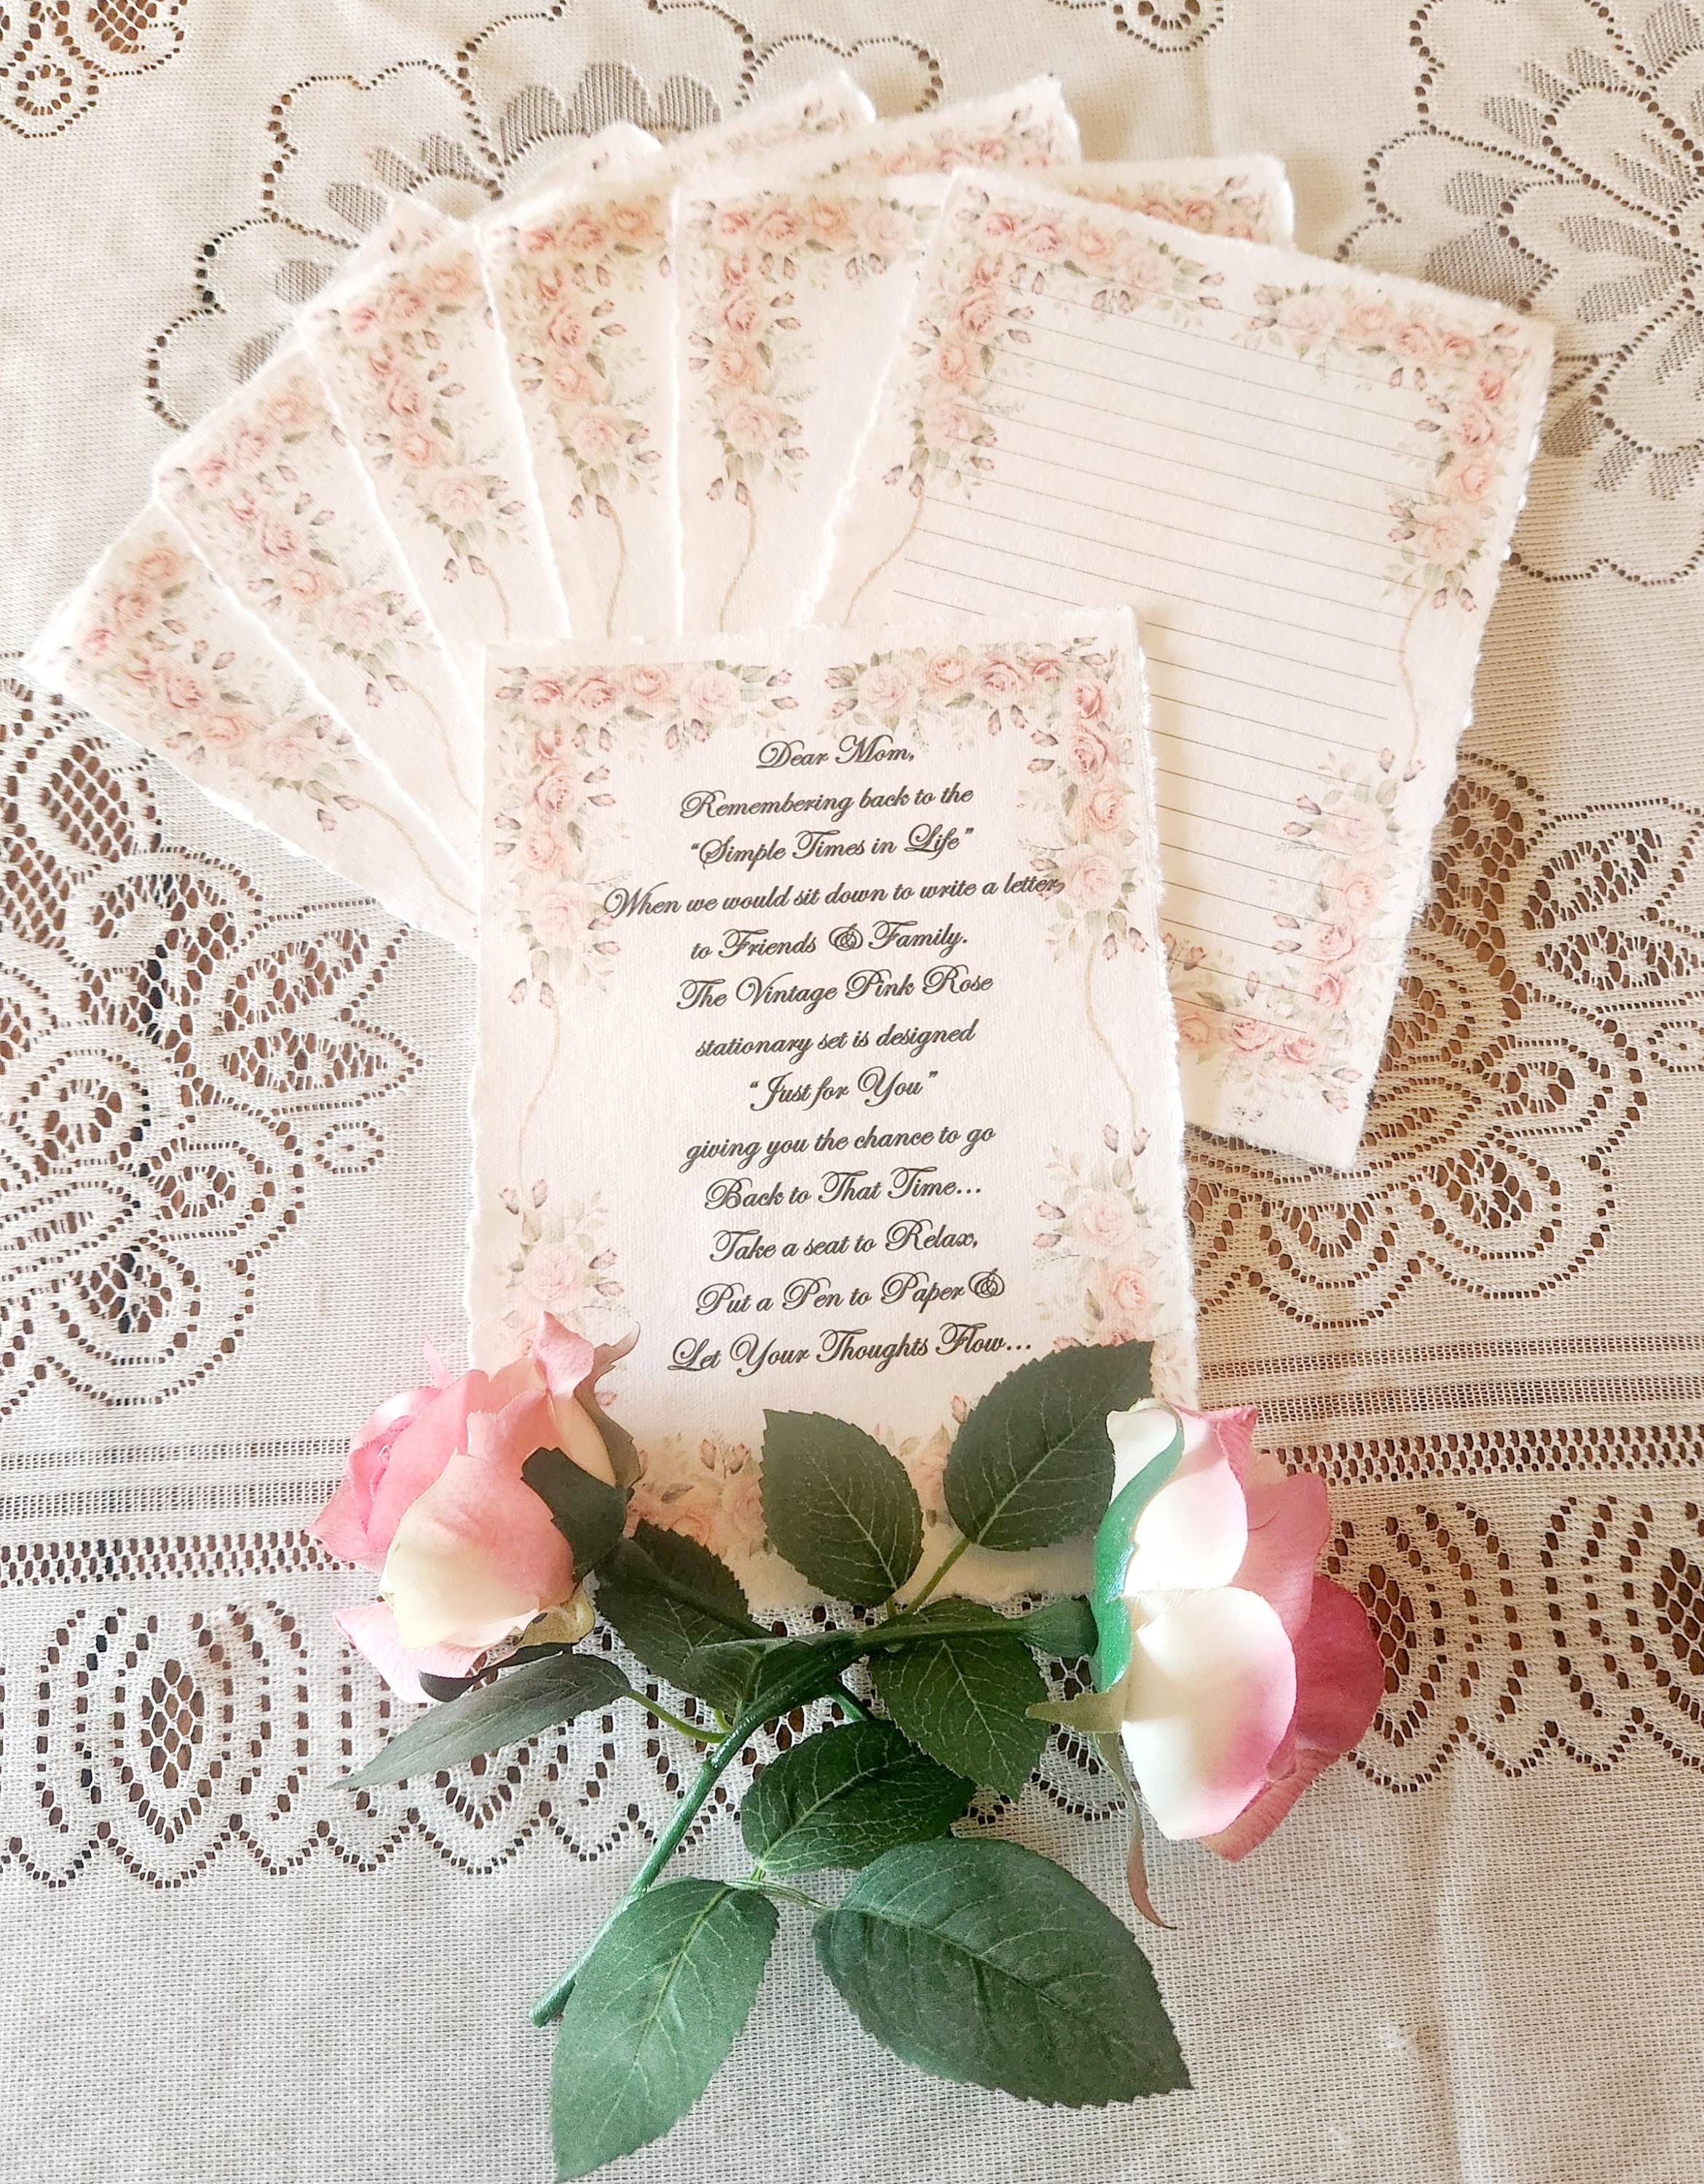 Dear Mom,
Remembering back to the
“Simple Times in Life”
When we would sit down to write a letter,
to Friends & Family.
The Vintage Pink Rose
stationary set is designed
“Just for You”
giving you the chance to go
Back to That Time...
Take a seat to Relax,
Put a Pen to Paper &
Let Your Thoughts Flow...